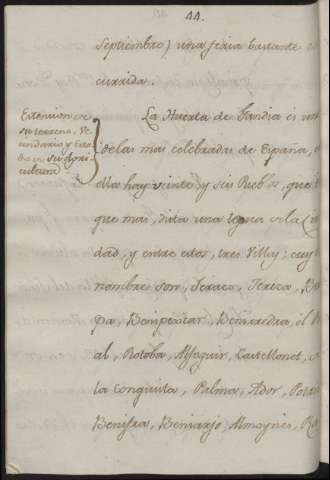 44.
Septiembre) una feria bastante
currida.
Extension de
su terreno, Ve-
cindario y Esta-
do de su Agri-
cultura
La Huerta de Gandia es un
de las mas celebradas de España,
ella hay veinte y seis Pueblos, que
que mas, dista una legua de la
dad, y entre estos, tres Villas; cuyos
nombre son, Xeraco, Xeresa,
pa, Benipeixcar, Benirredrá, el
al, Rotoba, Alfaguir, Castellonet,
la Conquista, Palma, Ador, Potrie
Beniflas, Beniarjó, Almoynes,